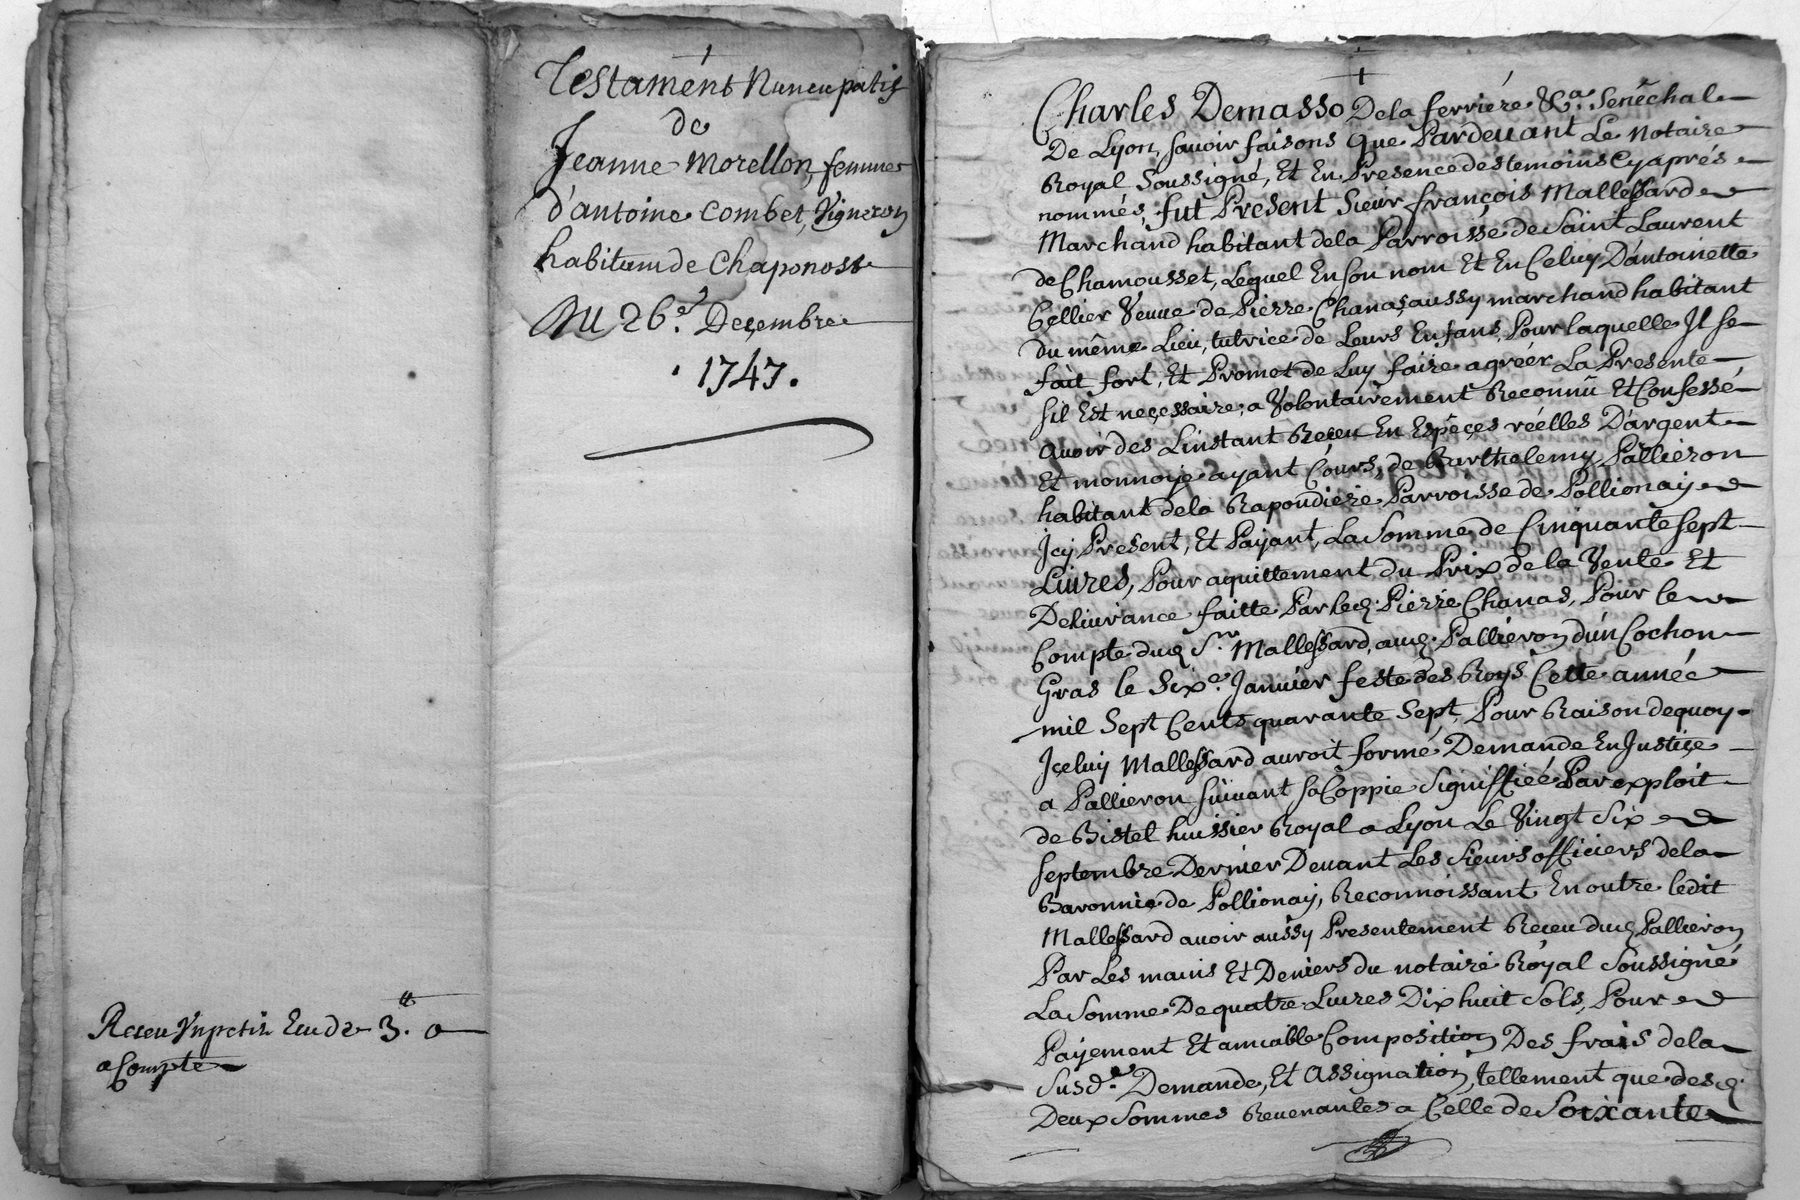 Testament Nuncupatif
de
Jeanne Morellon, femme
d'antoine Combet, Vigneron
habitant de Chaponost
Du 26e. Decembre
. 1747 .
Receu Un petit Ecu de 3.tt 0
a Compte
Charles Demasso De la ferriere &ca. Senêchal
De Lyon, savoir faisons Que Pardevant Le Notaire
Royal Soussigné, Et En Presence des temoins Cyaprés
nommés, fut Present Sieur françois Mallessard
Marchand habitant dela Parroisse de Saint Laurent
de Chamousset, Lequel En son nom Et En Celuy D'antoinette
Cellier Veuve de Pierre Chanas, aussy marchand habitant
du même Lieu, tutrice de Leurs Enfans, Pour laquelle Il se
fait fort, Et Promet de Luy faire agréer La Presente
sil Est neçessaire; a Volontairement Reconnû Et Confessé
avoir des L'instant Reçeu En Espèçes réelles D'argent
Et monnoye ayant Cours, de Barthelemy Pallieron
habitant dela Rapoudiere Parroisse de Pollionay
Jcy Present, Et Payant, La Somme de Cinquante Sept
Livres, Pour aquittement du Prix de la Vente Et
Delivrance faitte Par led. Pierre Chanas, Pour le
Compte dud. Sr. Mallessard, aud. Pallieron d'un Cochon
Gras le Sixe. Janvier feste des Roys Cette année
mil Sept Cents quarante Sept, Pour Raison dequoy
Jçeluy Mallessard auroit formé Demande En Justiçe
a Pallieron suivant sa Coppie Signiffiée Par exploit
de Bistel huissier Royal a Lyon Le Vingt Six
septembre Dernier Devant Les Sieurs officiers dela
Baronnie de Pollionay, Reconnoissant En outre ledit
Mallessard avoir aussy Presentement Reçeu dud. Pallieron
Par Les mains Et Deniers du notaire Royal Soussigné
La Somme De quatre Livres Dix huit Sols, Pour
Payement Et amiable Composition Des frais dela
Susde. Demande, Et Assignation, tellement que desd.
Deux Sommes Revenantes a Celle de Soixante